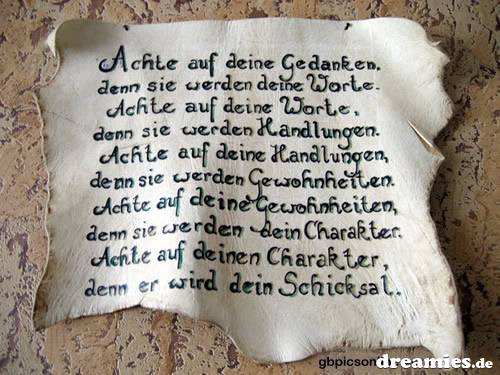 Achte auf deine Gedanken.
denn sie werden deine Worte.
Achte auf deine Worte,
denn sie werden Handlungen.
Achte auf deine Handlungen,
denn sie werden Gewohnheiten.
Achte auf deine Gewohnheiten,
denn sie werden dein Charakter.
Achte auf deinen Charakter,
denn er wird dein Schicksal.
dreamies.de